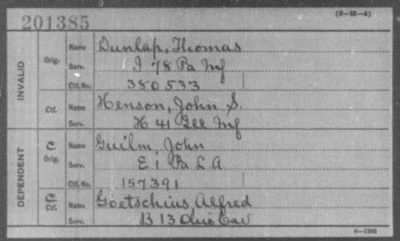 201385 (3-25-4)
INVALID Orig. Name Dunlap, Thomas
Serv. I 78 Pa Inf
Ctf. No. 380533
Ctf. Name Henson, John S.
Serv. H 41 Ill Inf
DEPENDENT C Orig. Name Guilm, John
Serv. E 1 Pa L A
Ctf. No. 157391
C Ctf. Name Goetschius, Alfred
Serv. B 13 Ohio Cav